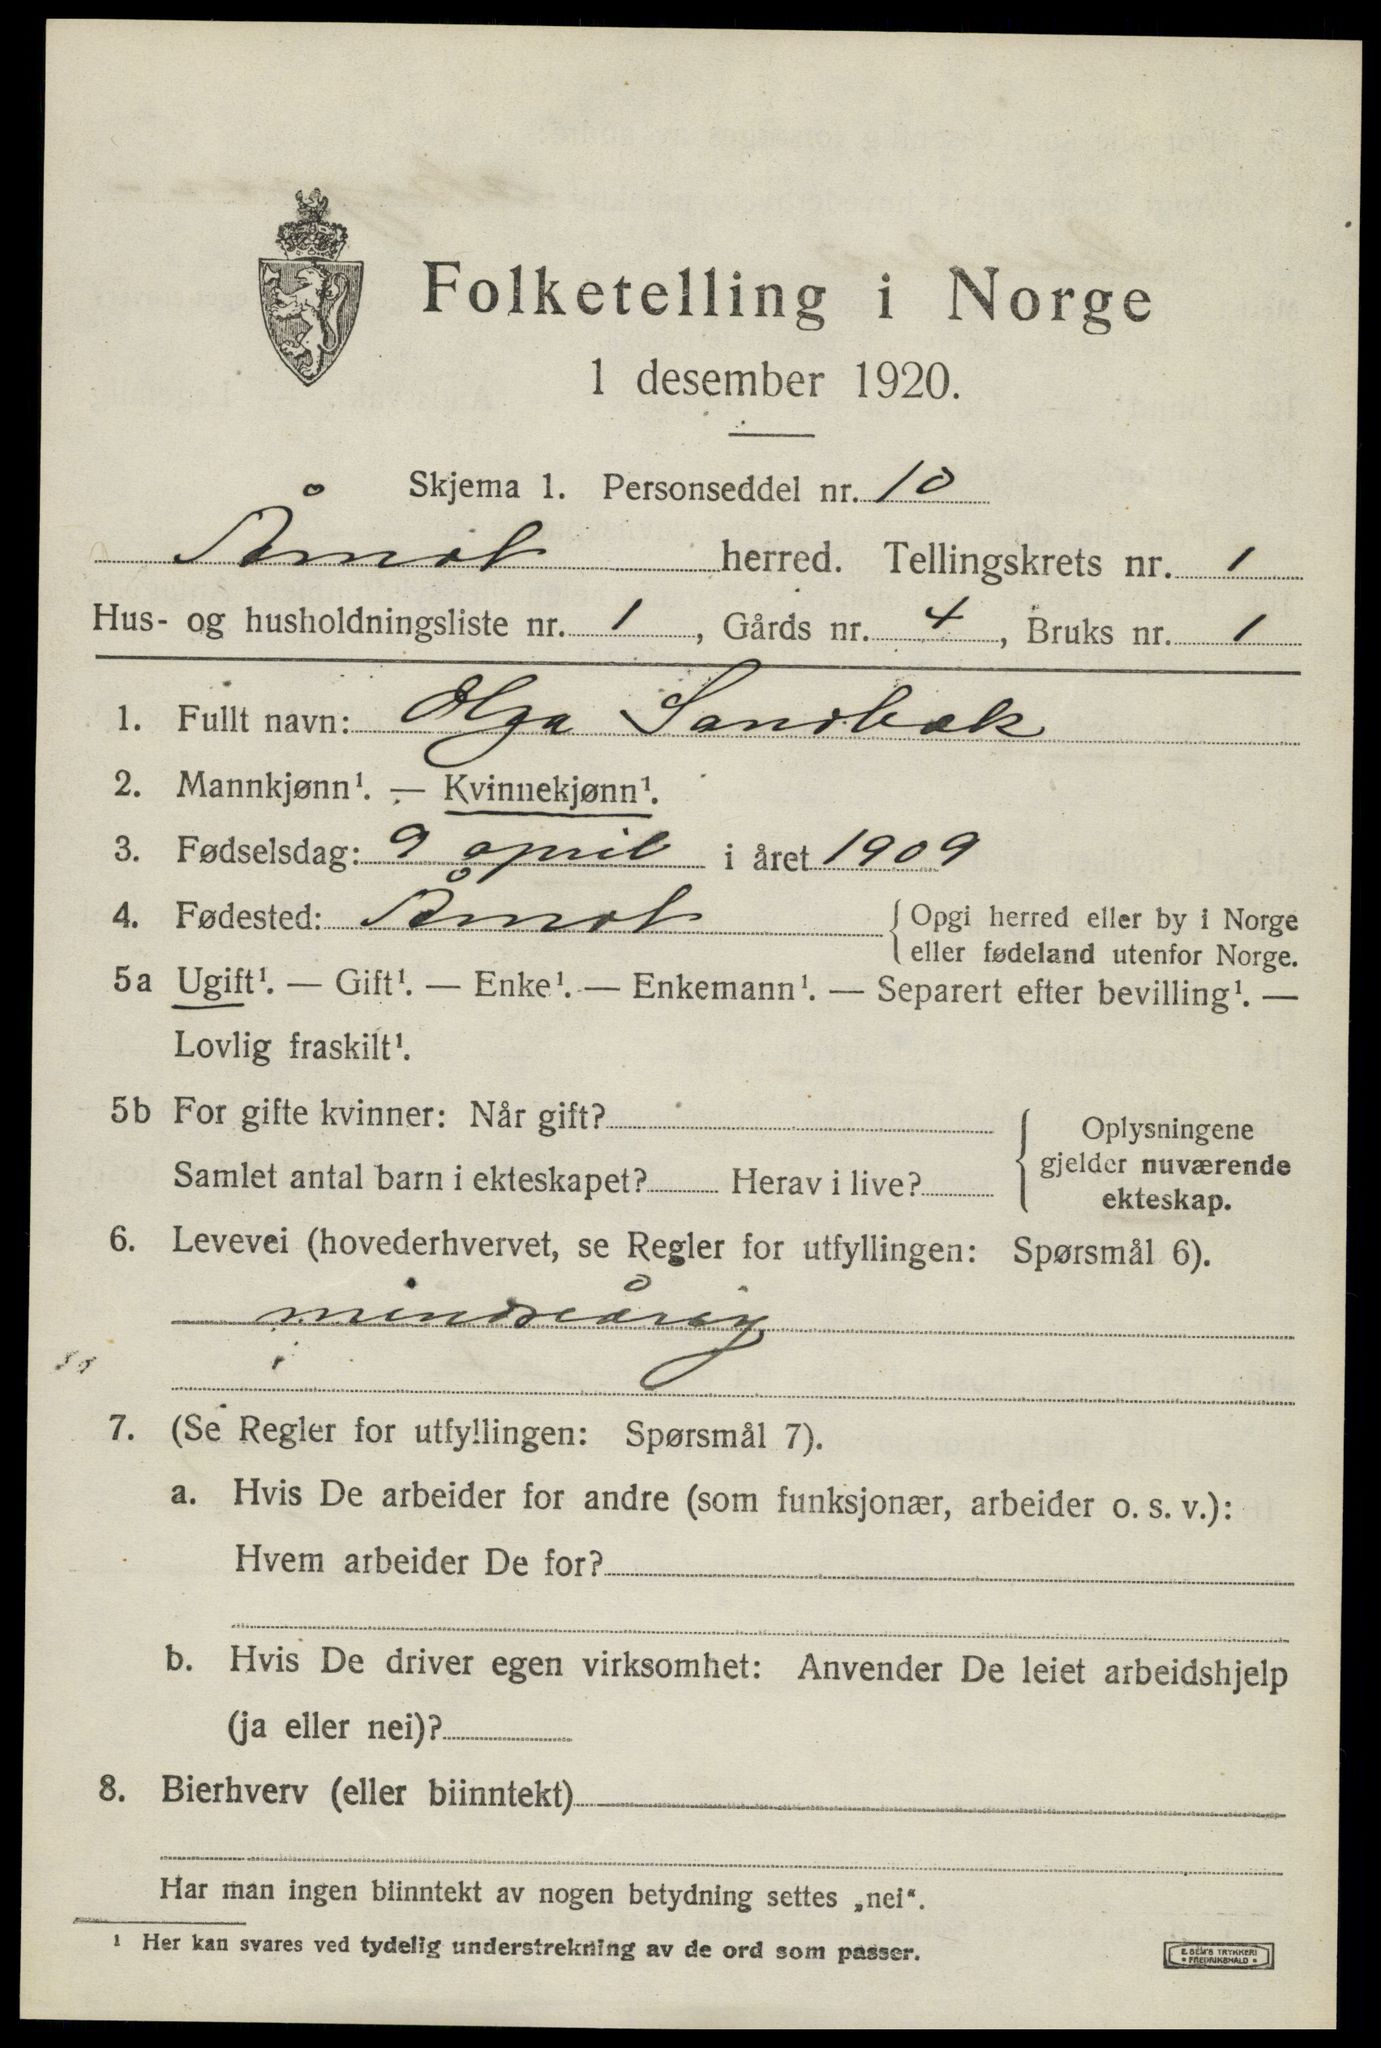 Folketelling i Norge
1 desember 1920.
Skjema 1. Personseddel nr. 10
Åmot herred. Tellingskrets nr. 1
Hus- og husholdningsliste nr. 1, Gårds nr. 4, Bruks nr. 1
1. Fullt navn: Olga Sandbæk
2. Mannkjønn¹. — Kvinnekjønn¹.
3. Fødselsdag: 9 april i året 1909
4. Fødested: Åmot { Opgi herred eller by i Norge
eller fødeland utenfor Norge.
5a Ugift¹. — Gift¹. — Enke¹. — Enkemann¹. — Separert efter bevilling¹. —
Lovlig fraskilt¹.
5b For gifte kvinner: Når gift?
Samlet antal barn i ekteskapet? Herav i live?
Oplysningene
gjelder nuværende
ekteskap.
6. Levevei (hovederhvervet, se Regler for utfyllingen: Spørsmål 6).
mindreårig
7. (Se Regler for utfyllingen: Spørsmål 7).
a. Hvis De arbeider for andre (som funksjonær, arbeider o. s. v.):
Hvem arbeider De for?
b. Hvis De driver egen virksomhet: Anvender De leiet arbeidshjelp
(ja eller nei)?
8. Bierhverv (eller biinntekt)
Har man ingen biinntekt av nogen betydning settes „nei“.
¹ Her kan svares ved tydelig understrekning av de ord som passer.
E. SEM'S TRYKKERI
• FREDRIKSHALD •